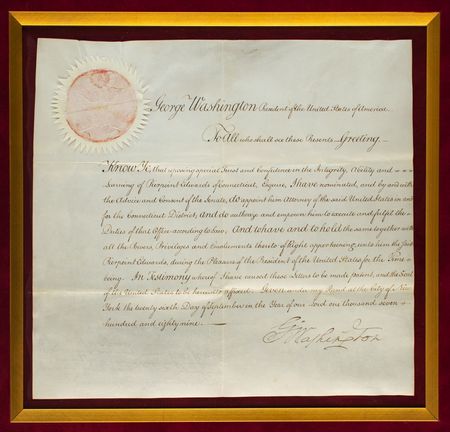 George Washington President of the United States of America.
To All who shall see these Presents Greeting.
Know Ye, that reposing special Trust and Confidence in the Integrity, Ability and
Learning of Pierpont Edwards of Connecticut, Esquire, I have nominated, and by and with
the Advice and Consent of the Senate, Do appoint him Attorney of the said United States in and
for the Connecticut District; And do authorize and empower him to execute and fulfil the
Duties of that Office according to Law; And to have and to hold the same together with
all the Powers, Privileges and Emoluments thereto of Right appertaining unto him the said
Pierpont Edwards, during the Pleasure of the President of the United States for the Time
being. In Testimony whereof I have caused these Letters to be made patent, and the Seal
of the United States to be hereunto affixed. Given under my Hand at the City of New
York the twenty sixth Day of September in the Year of our Lord one thousand seven
hundred and eighty nine.
G. Washington